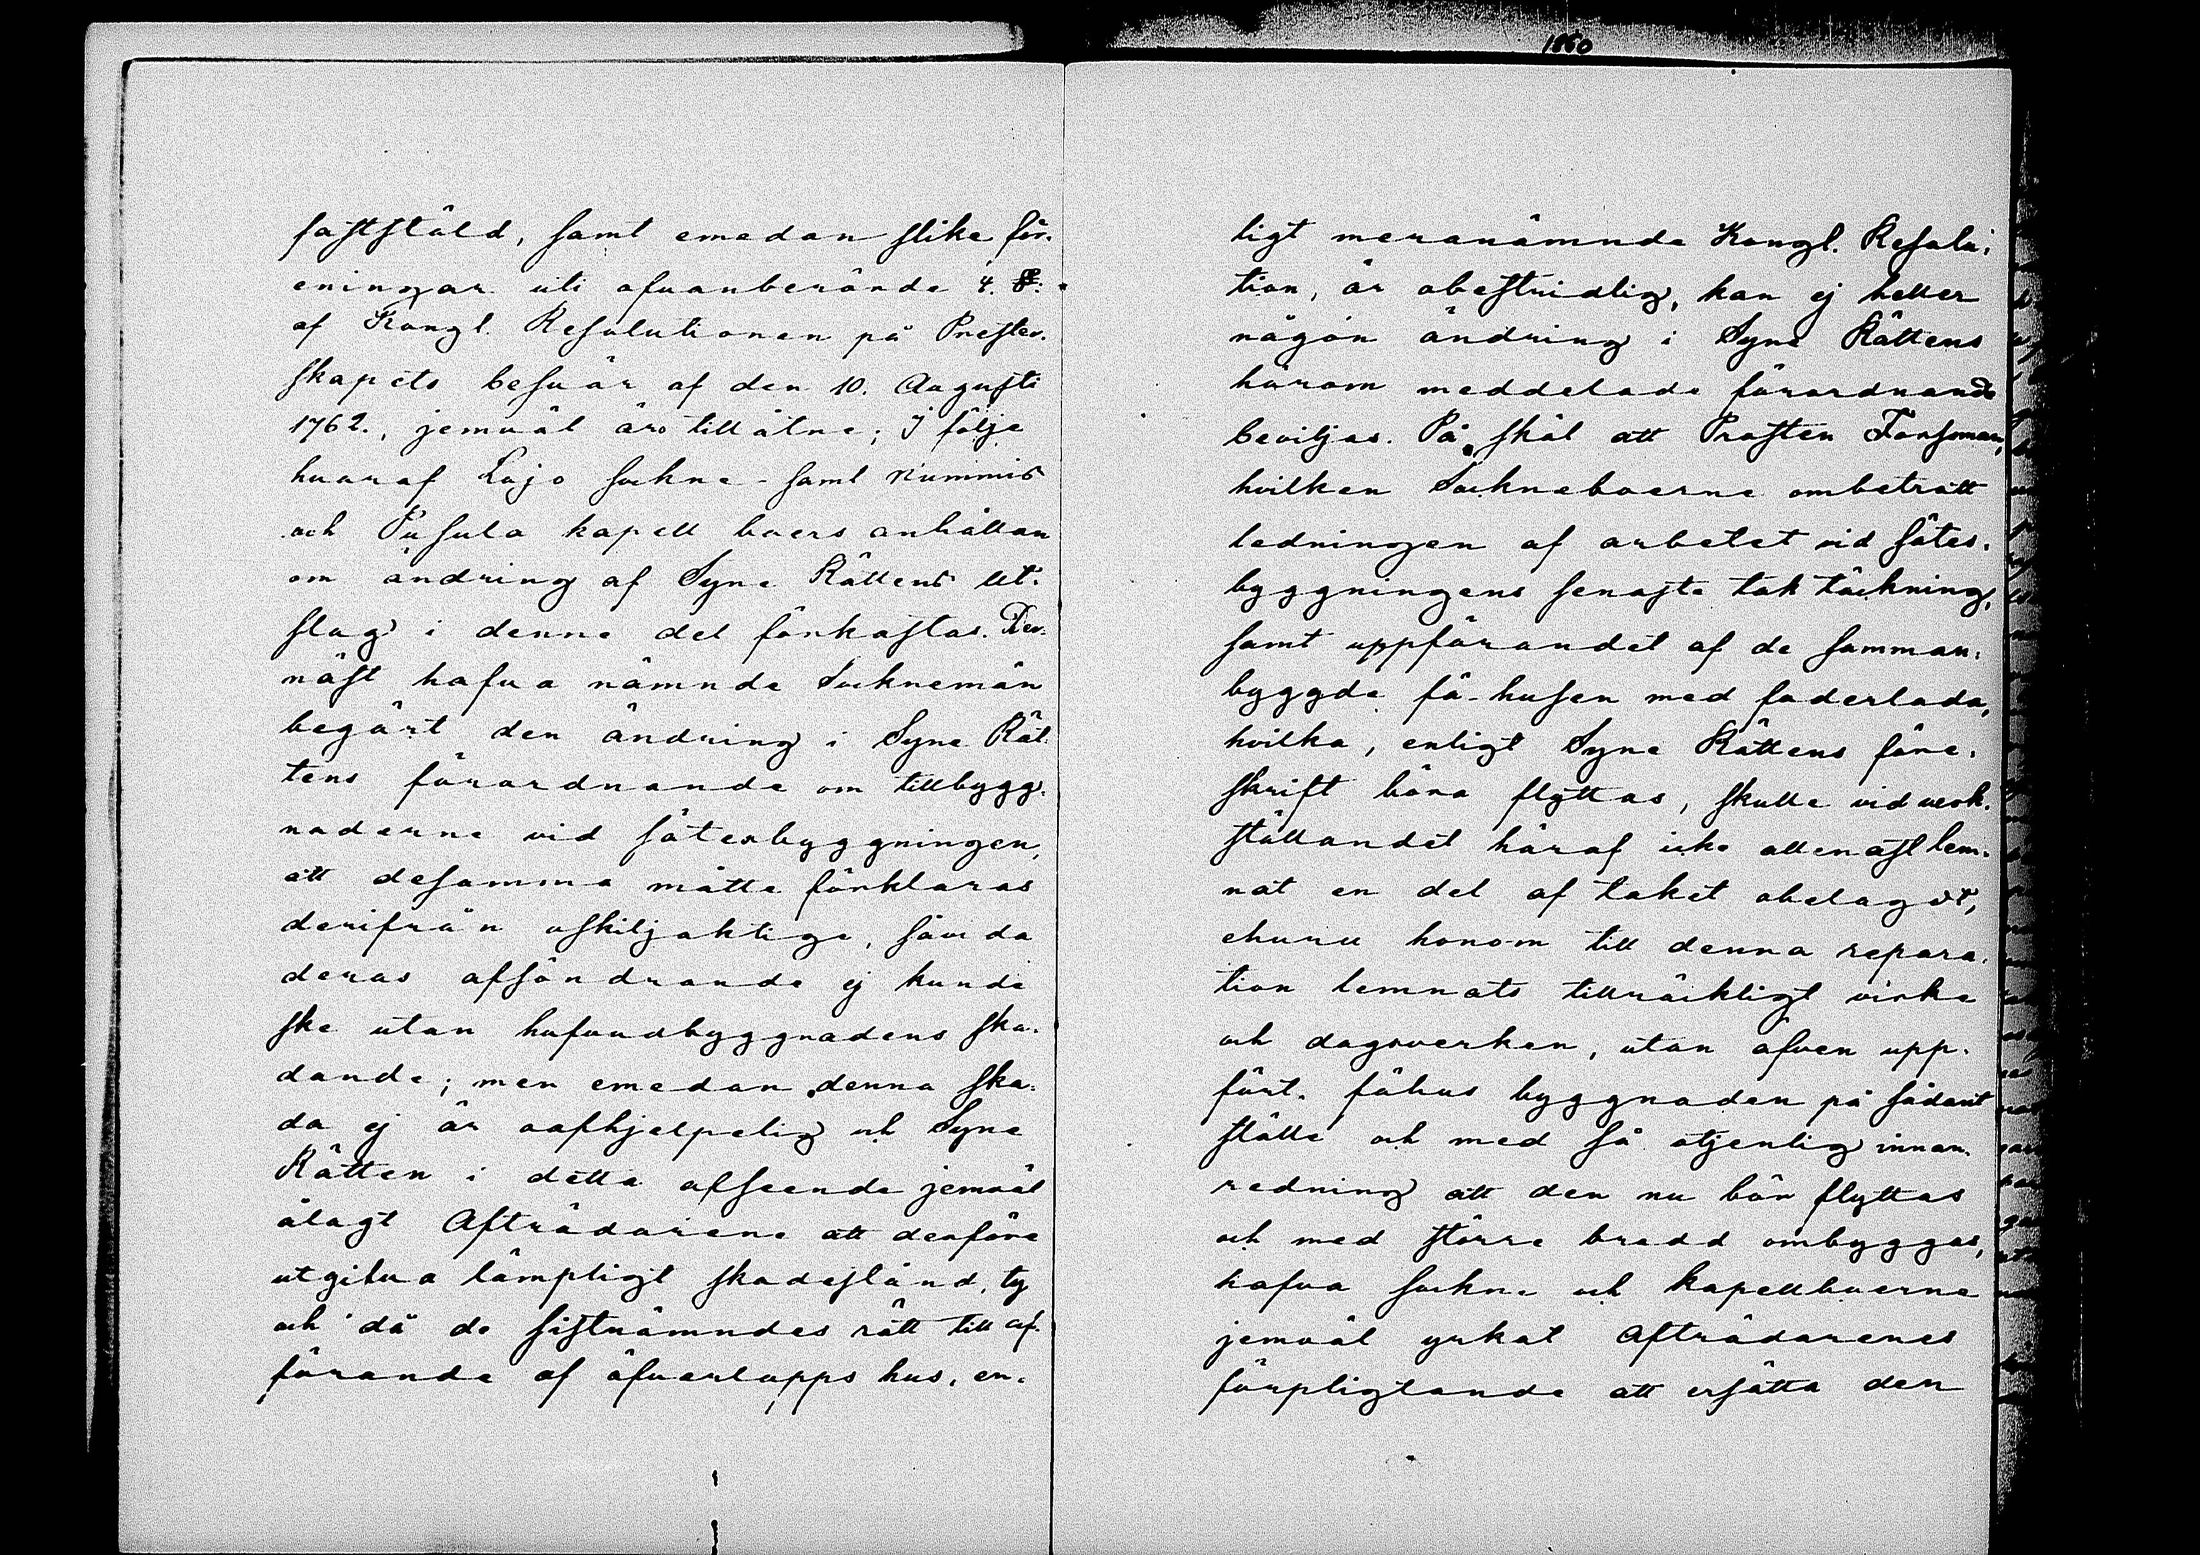 1860
fastställd, samt emedan slike för-
eningar uti ofvanberörde 4. §:
af Kongl. Resolutionen på Prester-
skapets besvär af den 10. Augusti
1762., jemväl äro tillåtne; I följe
hvaraf Lojo sockne- samt Nummis
och Pusula kapell boers anhållan
om ändring af Syne Rättens Ut-
slag i denne del förkastas. Der-
näst hafva nämnde Socknemän
begärt den ändring i Syne Rät-
tens förordnande om tillbygg-
naderne vid sätesbyggningen,
att desamma måtte förklaras
derifrån oskiljaktige, såvida
deras afsöndrande ej kunde
ske utan hufvudbyggnadens ska-
dande; men emedan denna ska-
da ej är oafhjelpelig och Syne
Rätten i detta afseende jemväl
ålagt Afträdarene att derföre
utgifva lämpligt skadestånd, ty
och då de sistnämndes rätt till af-
förande af öfverlopps hus, en-
ligt meranämnde Kongl. Resolu-
tion, är obestridlig, kan ej heller
någon ändring i Syne Rättens
härom meddelade förordnande
beviljas. På skäl att Prosten Forsman,
hvilken Sockneboerne ombetrott
ledningen af arbetet vid sätes-
byggningens senaste tak täckning,
samt uppförandet af de samman-
byggde fä-husen med foderlada,
hvilka, enligt Syne Rättens före-
skrift böra flyttas, skulle vid verk-
ställandet häraf icke allenast lem-
nat en del af taket obelagdt,
ehuru honom till denna repara-
tion lemnats tillräckligt virke
och dagsverken, utan äfven upp-
fört fähus byggnaden på sådant
ställe och med så otjenlig innan-
redning att den nu bör flyttas
och med större bredd ombyggas,
hafva sockne och kapellboerne
jemväl yrkat Afträdarenes
förpligtande att ersätta den